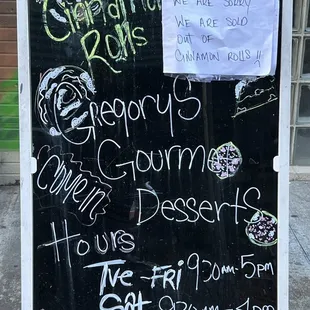 Cinnamon
Rolls
WE ARE SORRY
WE ARE SOLD
OUT OF
CINNAMON ROLLS !!
Gregory's
Gourme
Desserts
Come in
Hours
Tue-Fri 9:00am-5pm
Sat